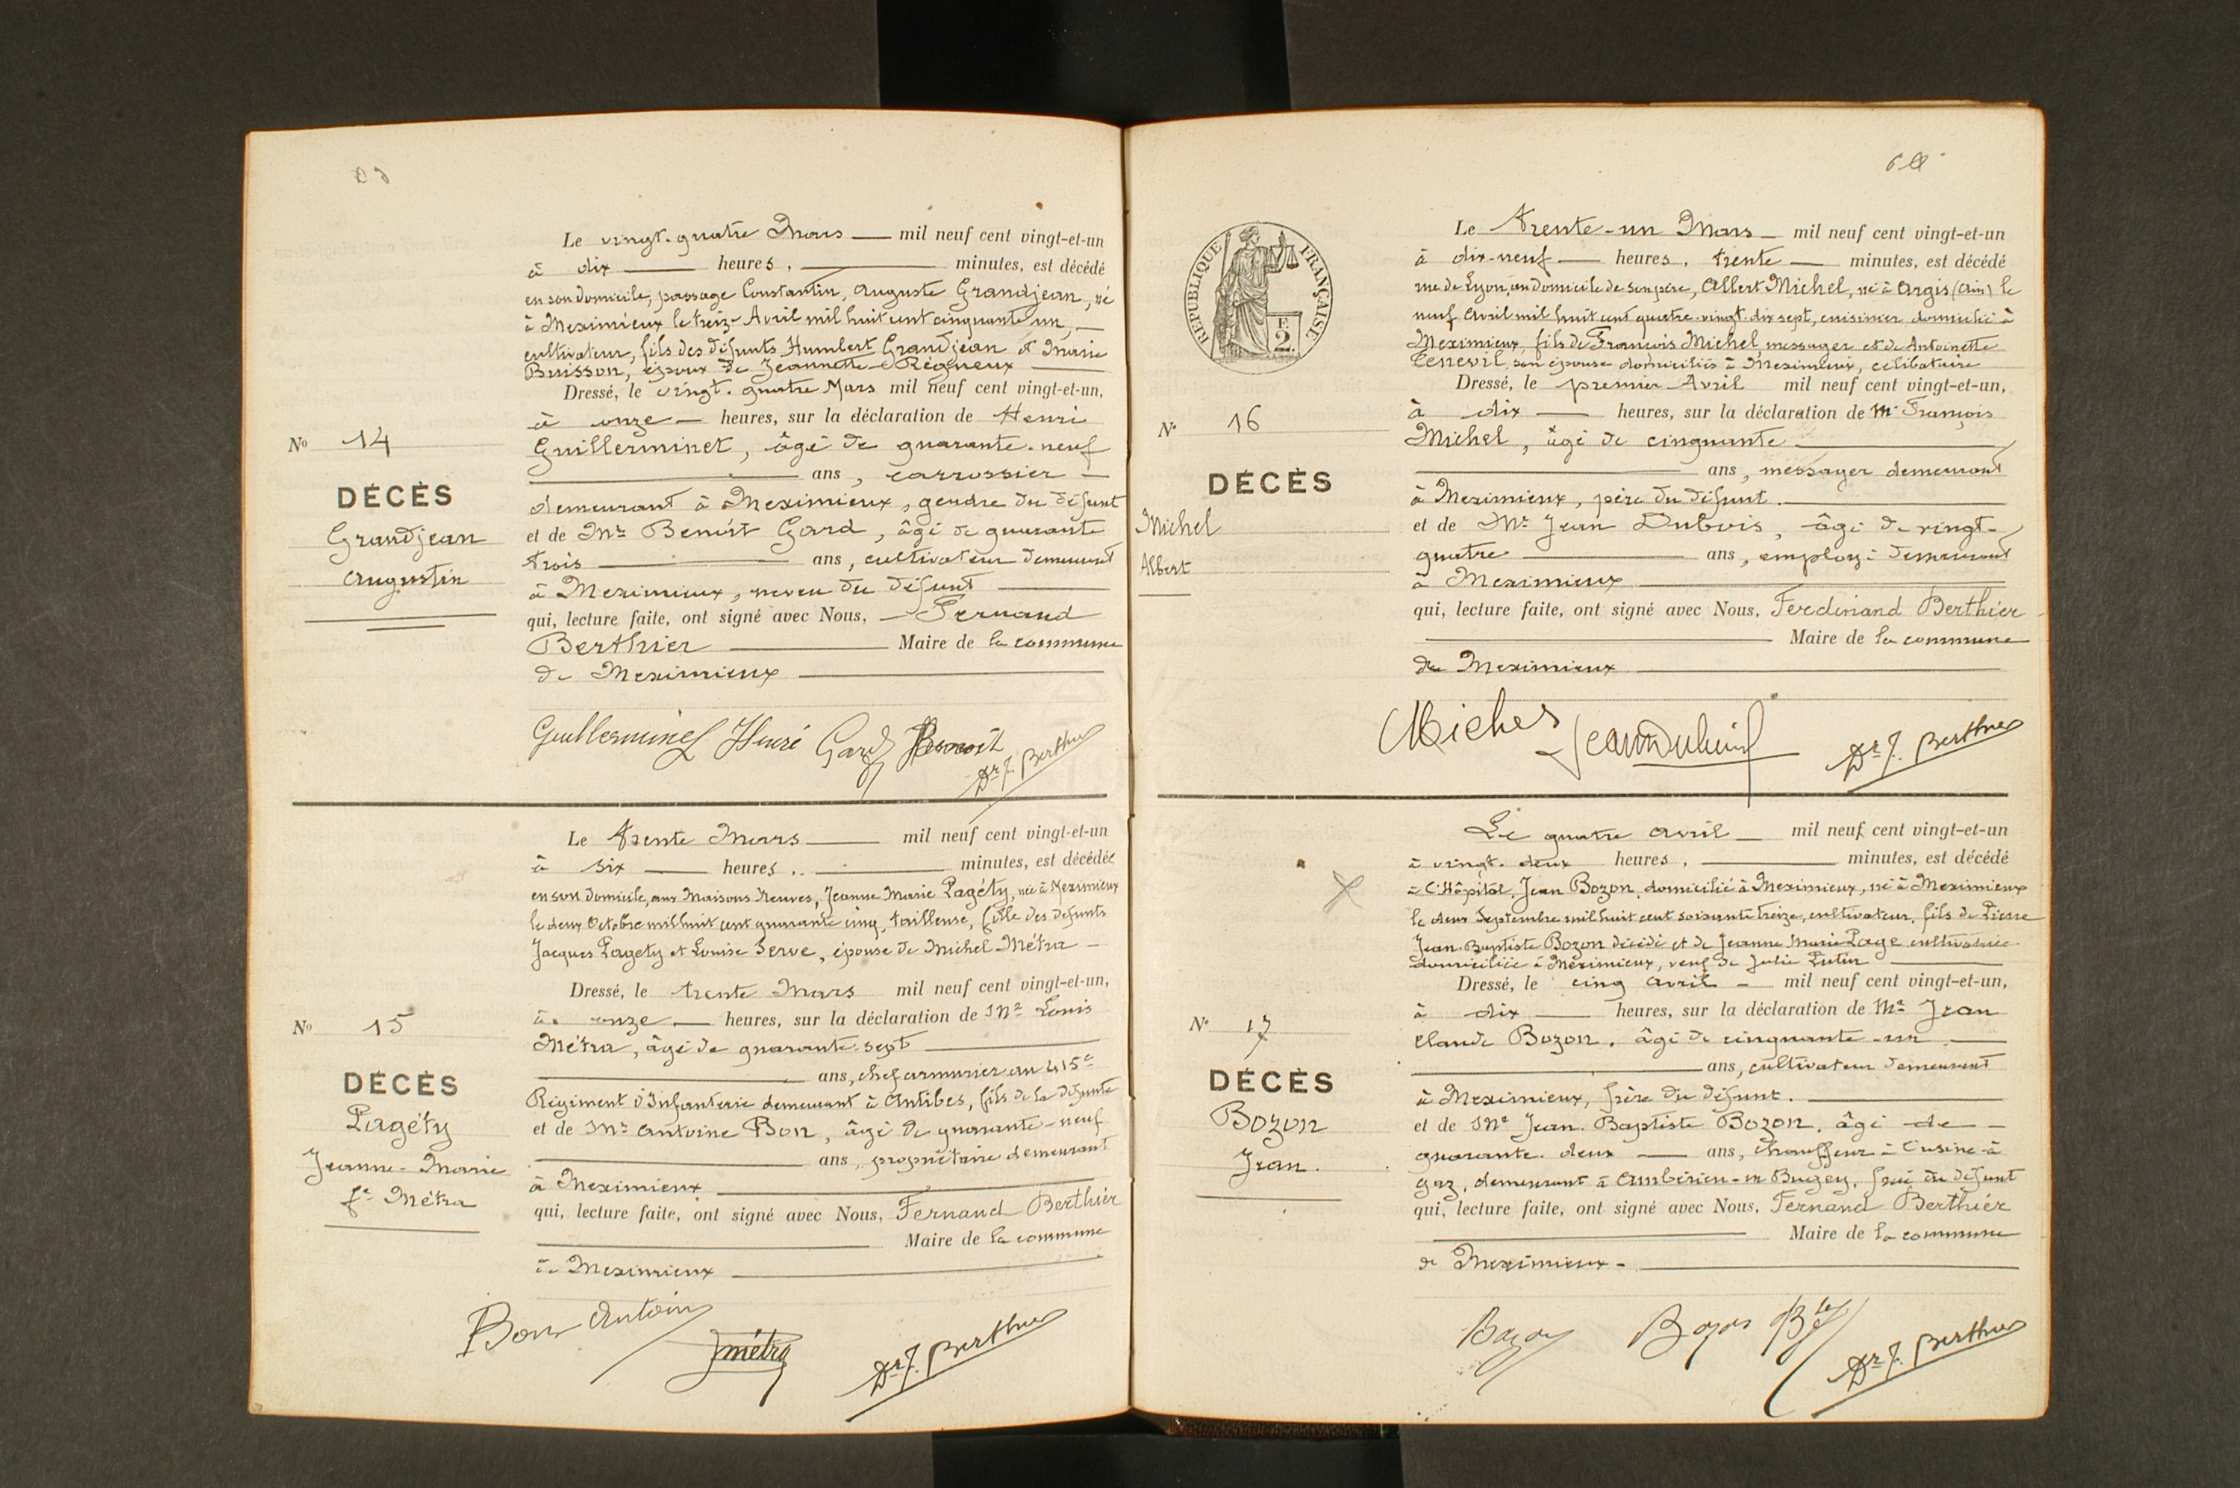 Le vingt-quatre Mars mil neuf cent vingt-et-un
à dix heures, minutes, est décédé
en son domicile, passage Constantin, Auguste Grandjean, né
à Meximieux le treize Avril mil huit cent cinquante un,
cultivateur, fils des défunts Humbert Grandjean et Marie
Buisson, époux de Jeannette Régneux
Dressé, le vingt-quatre Mars mil neuf cent vingt-et-un,
à onze heures, sur la déclaration de Henri
Guillerminet, âgé de quarante-neuf
ans, carrossier
demeurant à Meximieux, gendre du défunt
et de Mr Benoît Gard, âgé de quarante
trois ans, cultivateur demeurant
à Meximieux, neveu du défunt
qui, lecture faite, ont signé avec Nous, Fernand
Berthier Maire de la commune
de Meximieux
No 14
DÉCÈS
Grandjean
Augustin
Guillerminet Henri Gard Benoit
Dr F. Berthier
Le trente Mars mil neuf cent vingt-et-un
à six heures, minutes, est décédée
en son domicile, aux Maisons Neuves, Jeanne Marie Pagéty, née à Meximieux
le deux Octobre mil huit cent quarante cinq, tailleuse, fille des défunts
Jacques Pagéty et Louise Serve, épouse de Michel Métra
Dressé, le trente Mars mil neuf cent vingt-et-un,
à onze heures, sur la déclaration de Mr Louis
Métra, âgé de quarante-sept
ans, chef armurier au 415e
Régiment d'Infanterie demeurant à Antibes, fils de la défunte
et de Mr Antoine Bon, âgé de quarante-neuf
ans, propriétaire demeurant
à Meximieux
qui, lecture faite, ont signé avec Nous, Fernand Berthier
Maire de la commune
de Meximieux
No 15
DÉCÈS
Pagéty
Jeanne-Marie
fe Métra
Bon Antoine
Métra
Dr F. Berthier
RÉPUBLIQUE FRANÇAISE
E
2.
Le trente-un Mars mil neuf cent vingt-et-un
à dix-neuf heures, trente minutes, est décédé
rue de Lyon, au domicile de son père, Albert Michel, né à Argis (Ain) le
neuf Avril mil huit cent quatre-vingt-dix sept, cuisinier domicilié à
Meximieux, fils de François Michel messager et de Antoinette
Tenevil son épouse domiciliés à Meximieux, célibataire
Dressé, le premier Avril mil neuf cent vingt-et-un,
à dix heures, sur la déclaration de Mr François
Michel, âgé de cinquante
ans, messager demeurant
à Meximieux, père du défunt.
et de Mr Jean Dubois, âgé de vingt-
quatre ans, employé demeurant
à Meximieux
qui, lecture faite, ont signé avec Nous, Ferdinand Berthier
Maire de la commune
de Meximieux
No 16
DÉCÈS
Michel
Albert
Michel
Jean Dubois
Dr F. Berthier
Le quatre avril mil neuf cent vingt-et-un
à vingt-deux heures, minutes, est décédé
à l'Hôpital, Jean Bozon, domicilié à Meximieux, né à Meximieux
le deux Septembre mil huit cent soixante treize, cultivateur, fils de Pierre
Jean-Baptiste Bozon décédé et de Jeanne Marie Page cultivatrice
domiciliée à Meximieux, veuf de Julie Putin
Dressé, le cinq avril mil neuf cent vingt-et-un,
à dix heures, sur la déclaration de Mr Jean
Claude Bozon, âgé de cinquante-un
ans, cultivateur demeurant
à Meximieux, frère du défunt.
et de Mr Jean-Baptiste Bozon, âgé de
quarante-deux ans, Chauffeur à l'usine à
gaz, demeurant à Ambérieu-en-Bugey, frère du défunt
qui, lecture faite, ont signé avec Nous, Fernand Berthier
Maire de la commune
de Meximieux
No 17
DÉCÈS
Bozon
Jean.
Bozon Bozon Bte
Dr F. Berthier